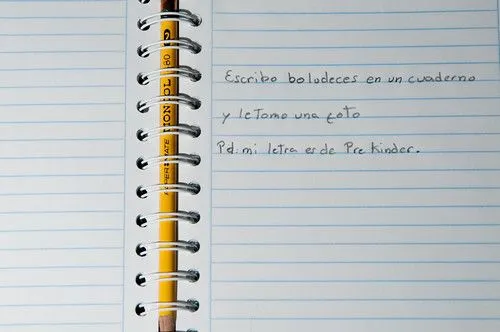 Escribo boludeces en un cuaderno
y le Tomo una foto
Pd: mi letra es de Pre Kinder.